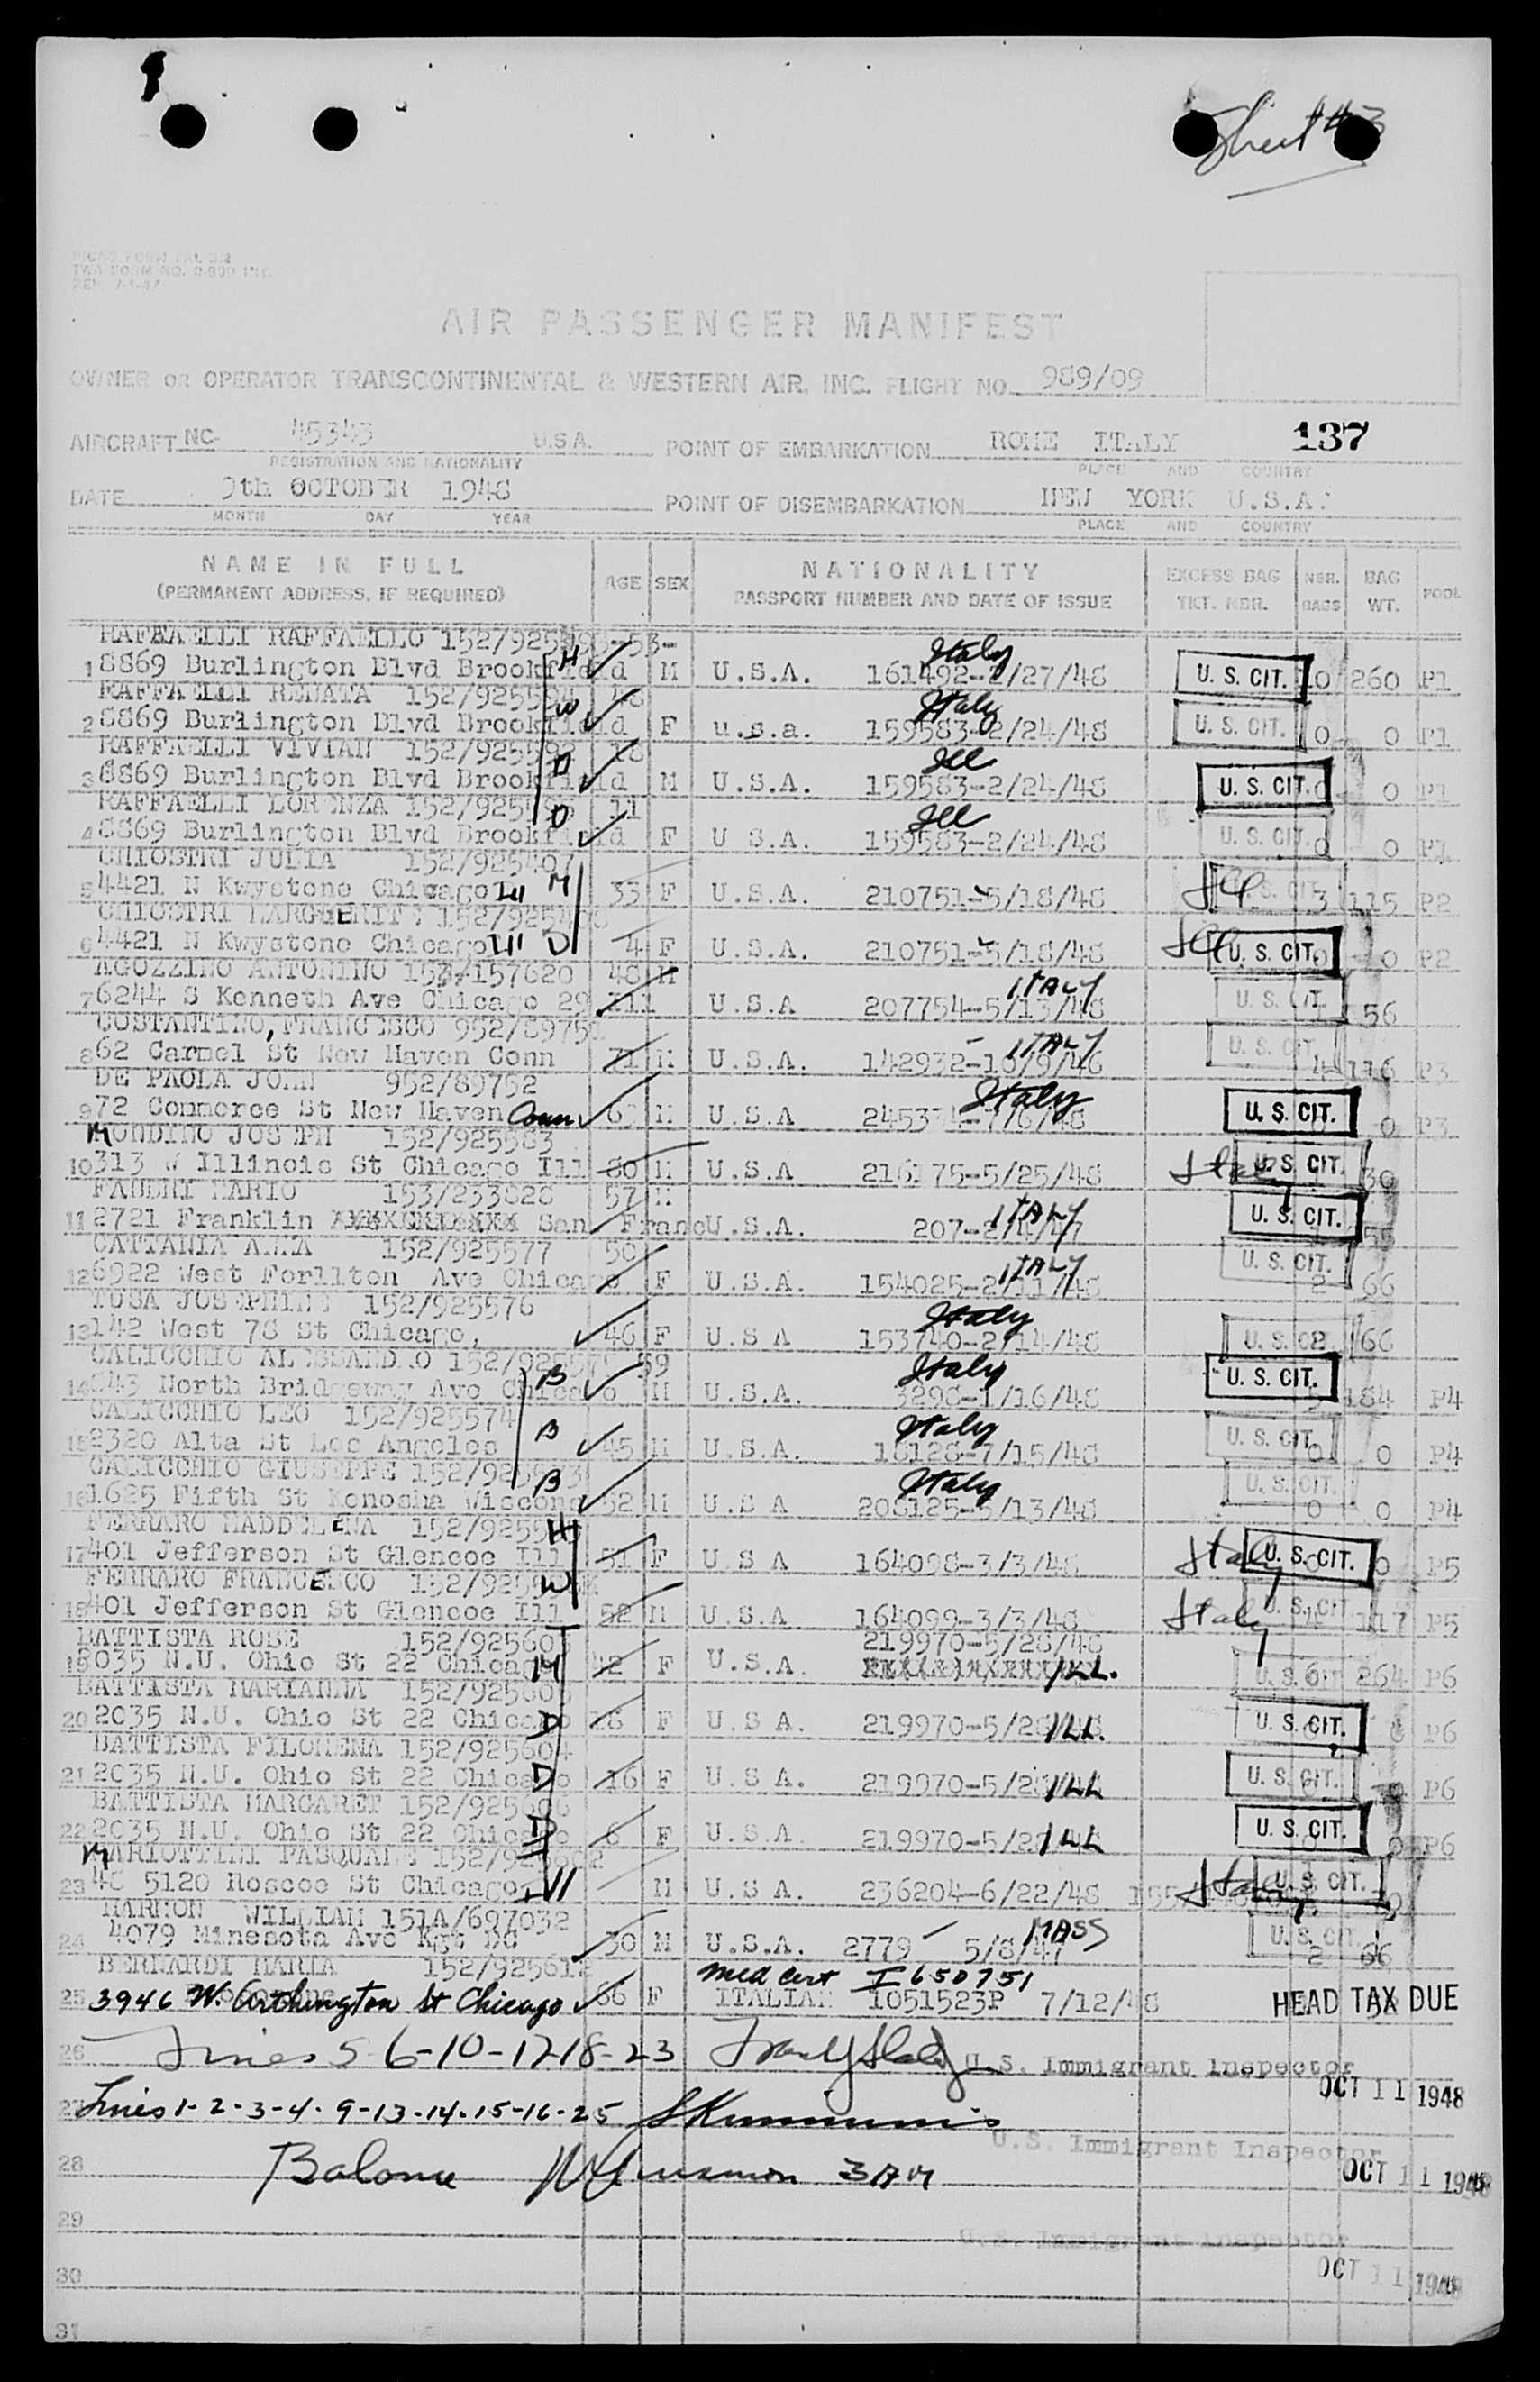 Sheet #3
TWA FORM NO.
AIR PASSENGER MANIFEST
OWNER OR OPERATOR TRANSCONTINENTAL & WESTERN AIR, INC. FLIGHT NO. 989/09
AIRCRAFT NC- 45343 U.S.A. POINT OF EMBARKATION ROME ITALY 137
REGISTRATION AND NATIONALITY PLACE AND COUNTRY
DATE 9th OCTOBER 1948 POINT OF DISEMBARKATION NEW YORK U.S.A.
MONTH DAY YEAR PLACE AND COUNTRY
NAME IN FULL AGE SEX NATIONALITY EXCESS BAG NBR. BAG POOL
(PERMANENT ADDRESS, IF REQUIRED) PASSPORT NUMBER AND DATE OF ISSUE TKT. NBR. BAGS WT.
RAFFAELLI RAFFAELLO Italy
1 8869 Burlington Blvd Brookfield H M U.S.A. 161492-2/27/48 U. S. CIT. 10 260 P1
RAFFAELLI RENATA 48 Italy
2 8869 Burlington Blvd Brookfield W F u.s.a. 159583-2/24/48 U. S. CIT. 0 0 P1
RAFFAELLI VIVIAN 152/925592 18 Ill
3 8869 Burlington Blvd Brookfield D M U.S.A. 159583-2/24/48 U. S. CIT. 0 0 P1
RAFFAELLI LORENZA 11 Ill
4 8869 Burlington Blvd Brookfield D F U S.A. 159583-2/24/48 U. S. CIT. 0 0 P1
CHIOSTRI JULIA
5 4421 N Kwystone Chicago Ill M 33 F U.S.A. 210751-5/18/48 Ill U. S. CIT. 3 115 P2
CHIOSTRI MARGUERITE
6 4421 N Kwystone Chicago Ill D 4 F U.S.A. 210751-5/18/48 Ill U. S. CIT. 0 0 P2
AGOZZINO ANTONINO 153/157620 48 M ITALY
7 6244 S Kenneth Ave Chicago 29 Ill U.S.A 207754-5/13/48 U. S. CIT. 56
COSTANTINO, FRANCESCO ITALY
8 62 Carmel St New Haven Conn 71 M U.S.A. 142932-10/9/46 U. S. CIT. 4 116 P3
DE PAOLA JOHN 952/89752 Italy
9 72 Commerce St New Haven Conn M U.S.A U. S. CIT. 0 P3
MONDINO JOSEPH 152/925583
10 313 W Illinois St Chicago Ill 80 M U.S.A 216175-5/25/48 Italy U. S. CIT. 30
MARIO 153/233828 57 M ITALY
11 2721 Franklin San Franc U.S.A. 207-2/4/47 U. S. CIT. 55
CATTANIA ANNA 152/925577 50 ITALY
12 6922 West Forllton Ave Chicago F U.S.A. 154025-2/11/48 U. S. CIT. 2 66
TUSA JOSEPHINE 152/925576 Italy
13 142 West 78 St Chicago, 46 F U.S A 153740-2/14/48 U. S. CIT. 2 66
CALICCHIO ALESSANDRO 59 Italy
14 North Bridgeway Ave Chicago B M U.S.A. 3298-1/16/48 U. S. CIT. 5 184 P4
CALICCHIO LEO 152/925574 Italy
15 2320 Alta St Los Angeles B 45 M U.S.A. 18128-7/15/48 U. S. CIT. 0 0 P4
CALICCHIO GIUSEPPE Italy
16 1625 Fifth St Kenosha Wiscons B 52 M U.S A 208125-5/13/48 U. S. CIT. 0 0 P4
FERRARO MADDELENA H
17 401 Jefferson St Glencoe Ill 51 F U.S A 164098-3/3/48 Italy U. S. CIT. 0 P5
FERRARO FRANCESCO W
18 401 Jefferson St Glencoe Ill 52 M U.S.A 164099-3/3/48 Italy U. S. CIT. 117 P5
BATTISTA ROSE 219970-5/28/48
19 2035 N.U. Ohio St 22 Chicago M 42 F U.S.A. ILL. U. S. CIT. 6 264 P6
BATTISTA MARIANNA
20 2035 N.U. Ohio St 22 Chicago D 18 F U.S A. 219970-5/28/48 ILL. U. S. CIT. P6
BATTISTA FILOMENA 152/925604
21 2035 N.U. Ohio St 22 Chicago D 16 F U.S A. 219970-5/28/48 ILL U. S. CIT. P6
BATTISTA MARGARET 152/925606
22 2035 N.U. Ohio St 22 Chicago D 6 F U.S.A. 219970-5/28/48 ILL U. S. CIT. 0 P6
MARIOTTINI PASQUALE
23 48 5120 Roscoe St Chicago, Ill M U.S A. 236204-6/22/48 Italy U. S. CIT.
HARMON WILLIAM 151A/697032 MASS
24 4079 Minesota Ave DC 30 M U.S.A. 2779 5/8/47 U. S. CIT. 2 66
BERNARDI MARIA 152/925612 med cert I 650751
25 3946 W. Arthington St Chicago 66 F ITALIAN 1051523P 7/12/48 HEAD TAX DUE
26 Lines 5-6-10-17-18-23 U.S. Immigrant Inspector
OCT 11 1948
27 Lines 1-2-3-4-9-13-14-15-16-25
U.S. Immigrant Inspector
28 Balance OCT 11 1948
29
U.S. Immigrant Inspector
30 OCT 11 1948
31